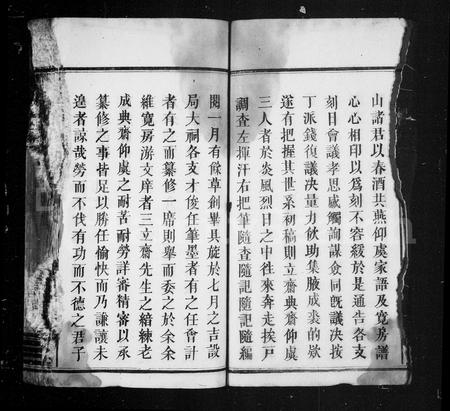 山諸君以春酒共燕仰虞家語及寬房譜
心心相印以爲刻不容緩於是通告各支
刻日會議孝思感觸詢謀僉同旣議决按
丁派錢復議决量力飲助集腋成裘的欵
遂有把握其世系初稿則立齋典齋仰虞
三人者於炎風烈日之中徃來奔走挨戸
調查左揮汗右把筆隨查隨記隨記隨編
閱一月有餘草創畢具旋於七月之吉設
局大祠各支才俊任筆墨者有之任會計
者有之而纂修一席則舉而委之於余余
維寬房游文庠者三立齋先生之績練老
成典齋仰虞之耐苦耐勞詳審精審以承
纂修之事皆足以勝任愉快而乃謙讓未
遑者諒哉勞而不伐有功而不德之君子